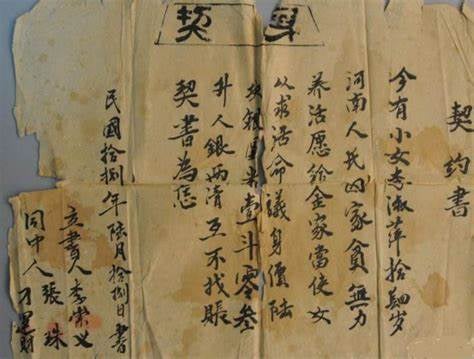 身契
契約書
今有小女李淑萍拾四岁
河南人氏因家貧無力
养活愿給金家當使女
从求活命議身價陸
米壹斗零叁
升人銀两清互不找賬
契書為恁
民國拾捌年陸月拾捌日書
立書人李崇义
張珠
同中人刁運財